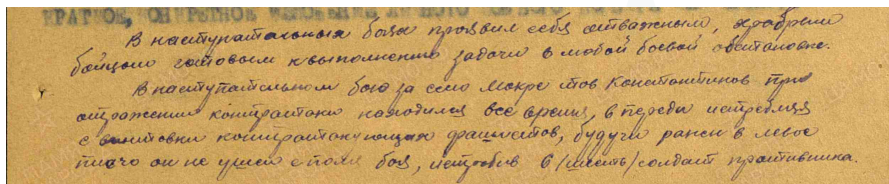 КРАТКОЕ, КОНКРЕТНОЕ ИЗЛОЖЕНИЕ ЛИЧНОГО
В наступательных боях проявил себя отважным, храбрым
бойцом готовым к выполнению задачи в любой боевой обстановке.
В наступательном бою за село Мокре тов Константинов при
отражении контратаки находился все время, в переди истребляя
с винтовки контратакующих фашистов, будучи ранен в левое
плечо он не ушел с поля боя, истребив 6 /шесть/ солдат противника.